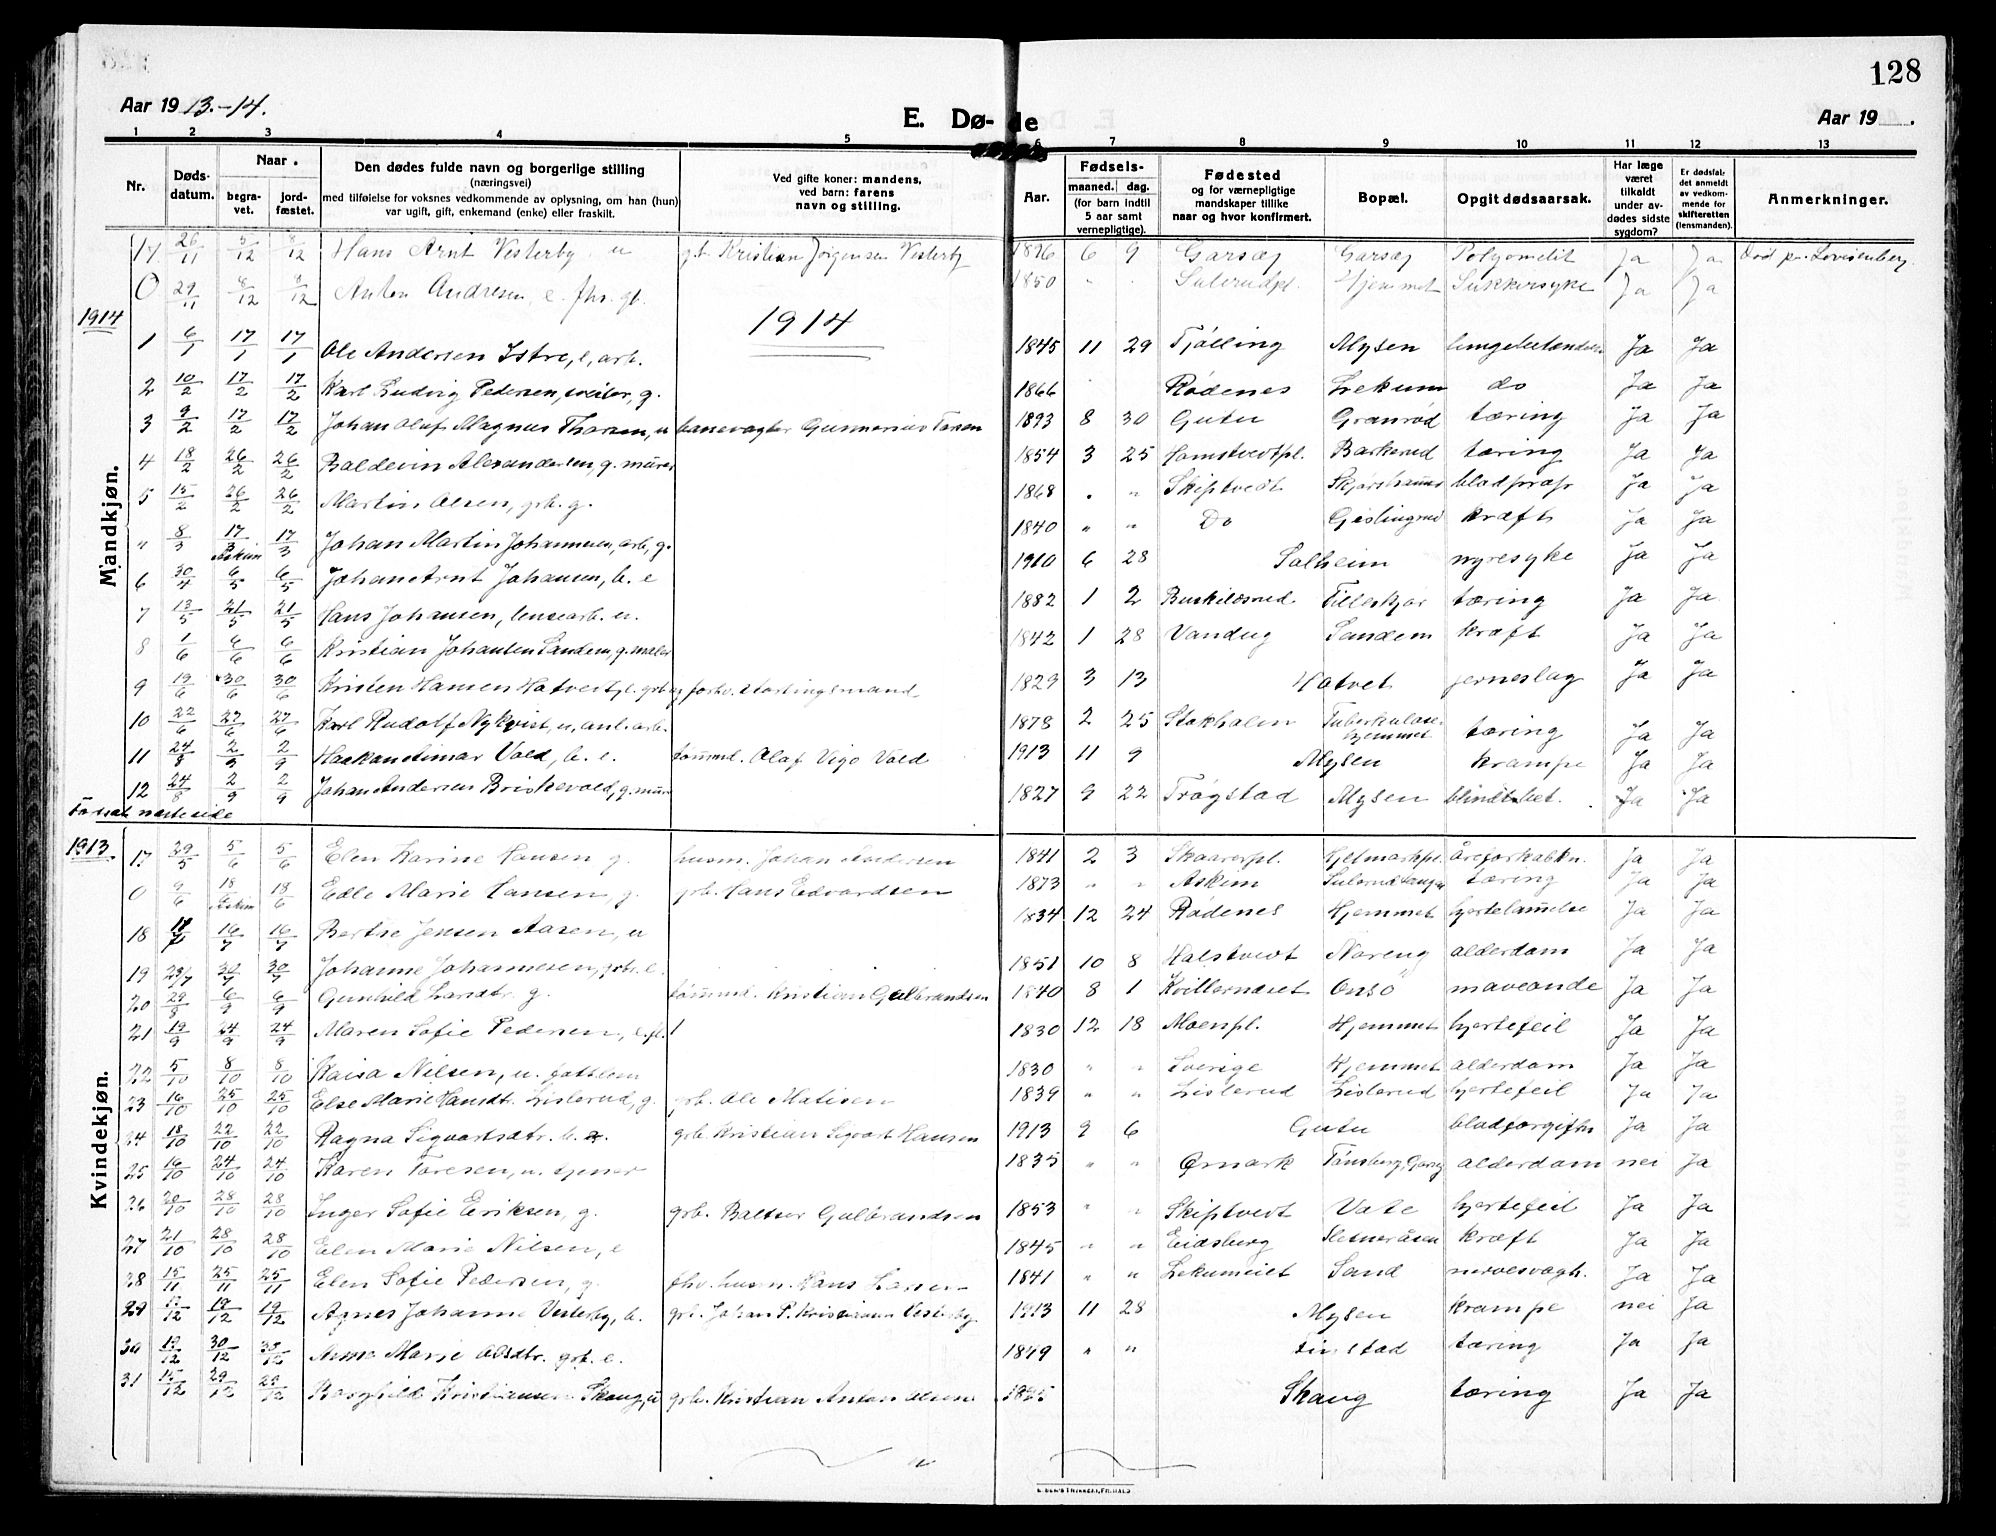 128
Aar 19 13.-14.
E. Dø- de
Aar 19 .
1 2 3 4 5 6 7 8 9 10 11 12 13
Nr. Dødsdatum. Naar. begravet. jordfæstet.
Den dødes fulde navn og borgerlige stilling
(næringsvei)
med tilføielse for voksnes vedkommende av oplysning, om han (hun)
var ugift, gift, enkemand (enke) eller fraskilt.
Ved gifte koner: mandens,
ved barn: farens
navn og stilling.
Aar. Fødsels- maaned. dag.
(for barn indtil
5 aar samt
vernepligtige).
Fødested
og for værnepligtige
mandskaper tillike
naar og hvor konfirmert.
Bopæl.
Opgit dødsaarsak.
Har læge
været
tilkaldt
under avdødes sidste
sygdom?
Er dødsfaldet anmeldt
av vedkommende for
skifteretten
(lensmanden).
Anmerkninger.
Mandkjøn.
17 26/11 5/12 8/12 Hans Arnt Vesterby u gb. Kristian Jørgensen Vesterby 1896 6 9 Garsæg Garsæg Polyomelit Ja Ja Død på Lovisenberg.
0 29/11 8/12 8/12 Anton Andresen, e. fhv. gb. 1850 " " Sulerudpl. Hjemmet Sukkersyke Ja Ja
1914
1914
1 6/1 17/1 17/1 Ole Andersen Istre, e, arb. 1845 11 29 Tjølling Mysen Ja Ja
2 10/2 17/2 17/2 Karl Ludvig Pedersen, g. 1866 Rødenes Lekum do Ja Ja
3 9/2 17/2 17/2 Johan Olaf Magnus Thoresen, u banevogter Gunnerius 1893 8 30 Gutu Granrød tæring Ja Ja
4 18/2 26/2 26/2 Baldevin Alexandersen, g. murer 1854 3 25 Homstvedtpl. Barkerud tæring Ja Ja
5 15/2 26/2 26/2 Martin Olsen, grb. g. 1868 . " Skiptvedt blodpropr Ja Ja
" 8/3 17/3 Askim 17/3 Johan Martin Johannesen, arb, g. 1840 " " Do Gislingrud kræft Ja Ja
6 30/4 6/5 6/5 Johan Arnt Johansen, b. e 1910 6 28 Solheim nyresyke Ja Ja
7 13/5 21/5 21/5 Hans Johansen, lensearb. u. 1882 1 2 Tilleskjør tæring Ja Ja
8 1/6 6/6 6/6 Kristian Johansen Sandem, g. maler 1842 1 28 Vandug Sandem kræft Ja Ja
9 19/6 30/6 30/6 Kristen Hansen Hatvet, g. grb. og forhv. stortingsmand 1829 3 13 Hatvet jerneslag Ja Ja
10 22/6 27/6 27/6 Karl Rudolf Nykvist, u, anl. arb. 1878 2 25 Stokholm Tuberkulosehjemmet tæring Ja Ja
11 24/8 2/9 2/9 Haakon Einar Vold, b. e. tømmd. Olaf Vigo Vold 1913 11 9 Mysen krampe Ja Ja
12 24/8 2/9 2/9 Johan Andersen Briskevold, g. mur 1827 9 22 Trøgstad Mysen blindt.bet. Ja Ja
Forsat næste side
Kvindekjøn.
1913.
17 29/5 5/6 5/6 Elen Karine Hansen g. husm. Johan Andersen 1841 2 3 Skaarerpl. Hjelmarkpl. åreforkalkn. Ja Ja
0 9/6 18/6 Askim 18/6 Edle Marie Hansen, g. grb. Hans Edvardsen 1873 " " Askim tæring Ja Ja
18 11/7 16/7 16/7 Berthe Jensen Aasen, u 1834 12 24 Rødenes Hjemmet hjertelammelse Ja Ja
19 23/7 30/7 30/7 Johanne Johannesen, grb. e. 1851 10 8 Halstvedt Noreng alderdom Ja Ja
20 29/8 6/9 6/9 Gunhild Larsdtr. g. tømmd. Kristian Gulbrandsen 1840 8 1 Kvillernæset Onsö maveonde Ja Ja
21 19/9 24/9 24/9 Maren Sofie Pedersen, e. pl. 1830 12 18 Moenpl. Hjemmet hjertefeil Ja Ja
22 5/10 8/10 8/10 Kaisa Nilsen, u. fattlem 1830 " " Sverige Hjemmet alderdom Ja Ja
23 16/10 25/10 25/10 Else Marie Hansdtr. Lislerud, g. grb. Ole Matisen 1839 " " Lislerud Lislerud hjertefeil Ja Ja
24 18/10 22/10 22/10 Ragna Sigvartsdtr. b. e. grb. Kristian Sigvart Hansen 1913 9 6 Gutu blodforgiftn. Ja Ja
25 16/10 24/10 24/10 Karen Toresen, u. tjener 1835 " " Ørmark alderdom nei Ja
26 20/10 28/10 28/10 Inger Sofie Eriksen, g. grb. Baltser Gulbrandsen 1853 " " Skiptvedt Vate hjertefeil Ja Ja
27 21/10 28/10 28/10 Elen Marie Nilsen, e 1845 " " Eidsberg Slesneråsen kræft Ja Ja
28 15/11 25/11 25/11 Elen Sofie Pedersen, g. fhv. husm. Hans Larsen 1841 " " Lekumeiet Sand nervesvagh. Ja Ja
29 12/12 19/12 19/12 Agnes Johanne Vesterby, b. grb. Johan P. Kristiansen Vesterby 1913 11 28 Mysen krampe nei Ja
30 19/12 30/12 30/12 Anne Marie Olsdtr. grb. e. 1849 " " Finstad tæring Ja Ja
31 15/12 29/12 29/12 Borghild Kristiansen Skaug, u grb. Kristian Anton Olsen 1895 Skaug tæring Ja Ja